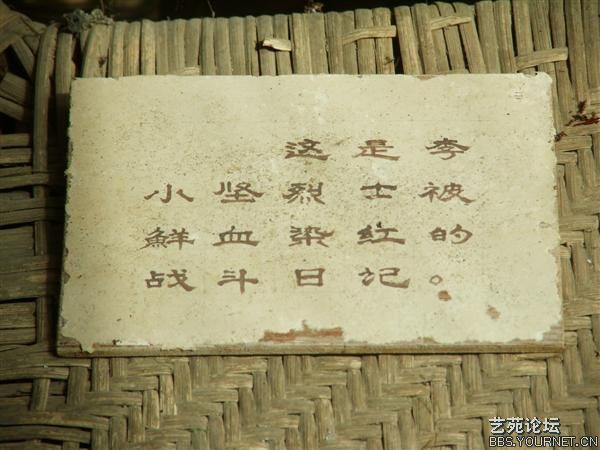 这是李
小坚烈士被
鲜血染红的
战斗日记。
艺苑论坛
BBS.YOURNET.CN